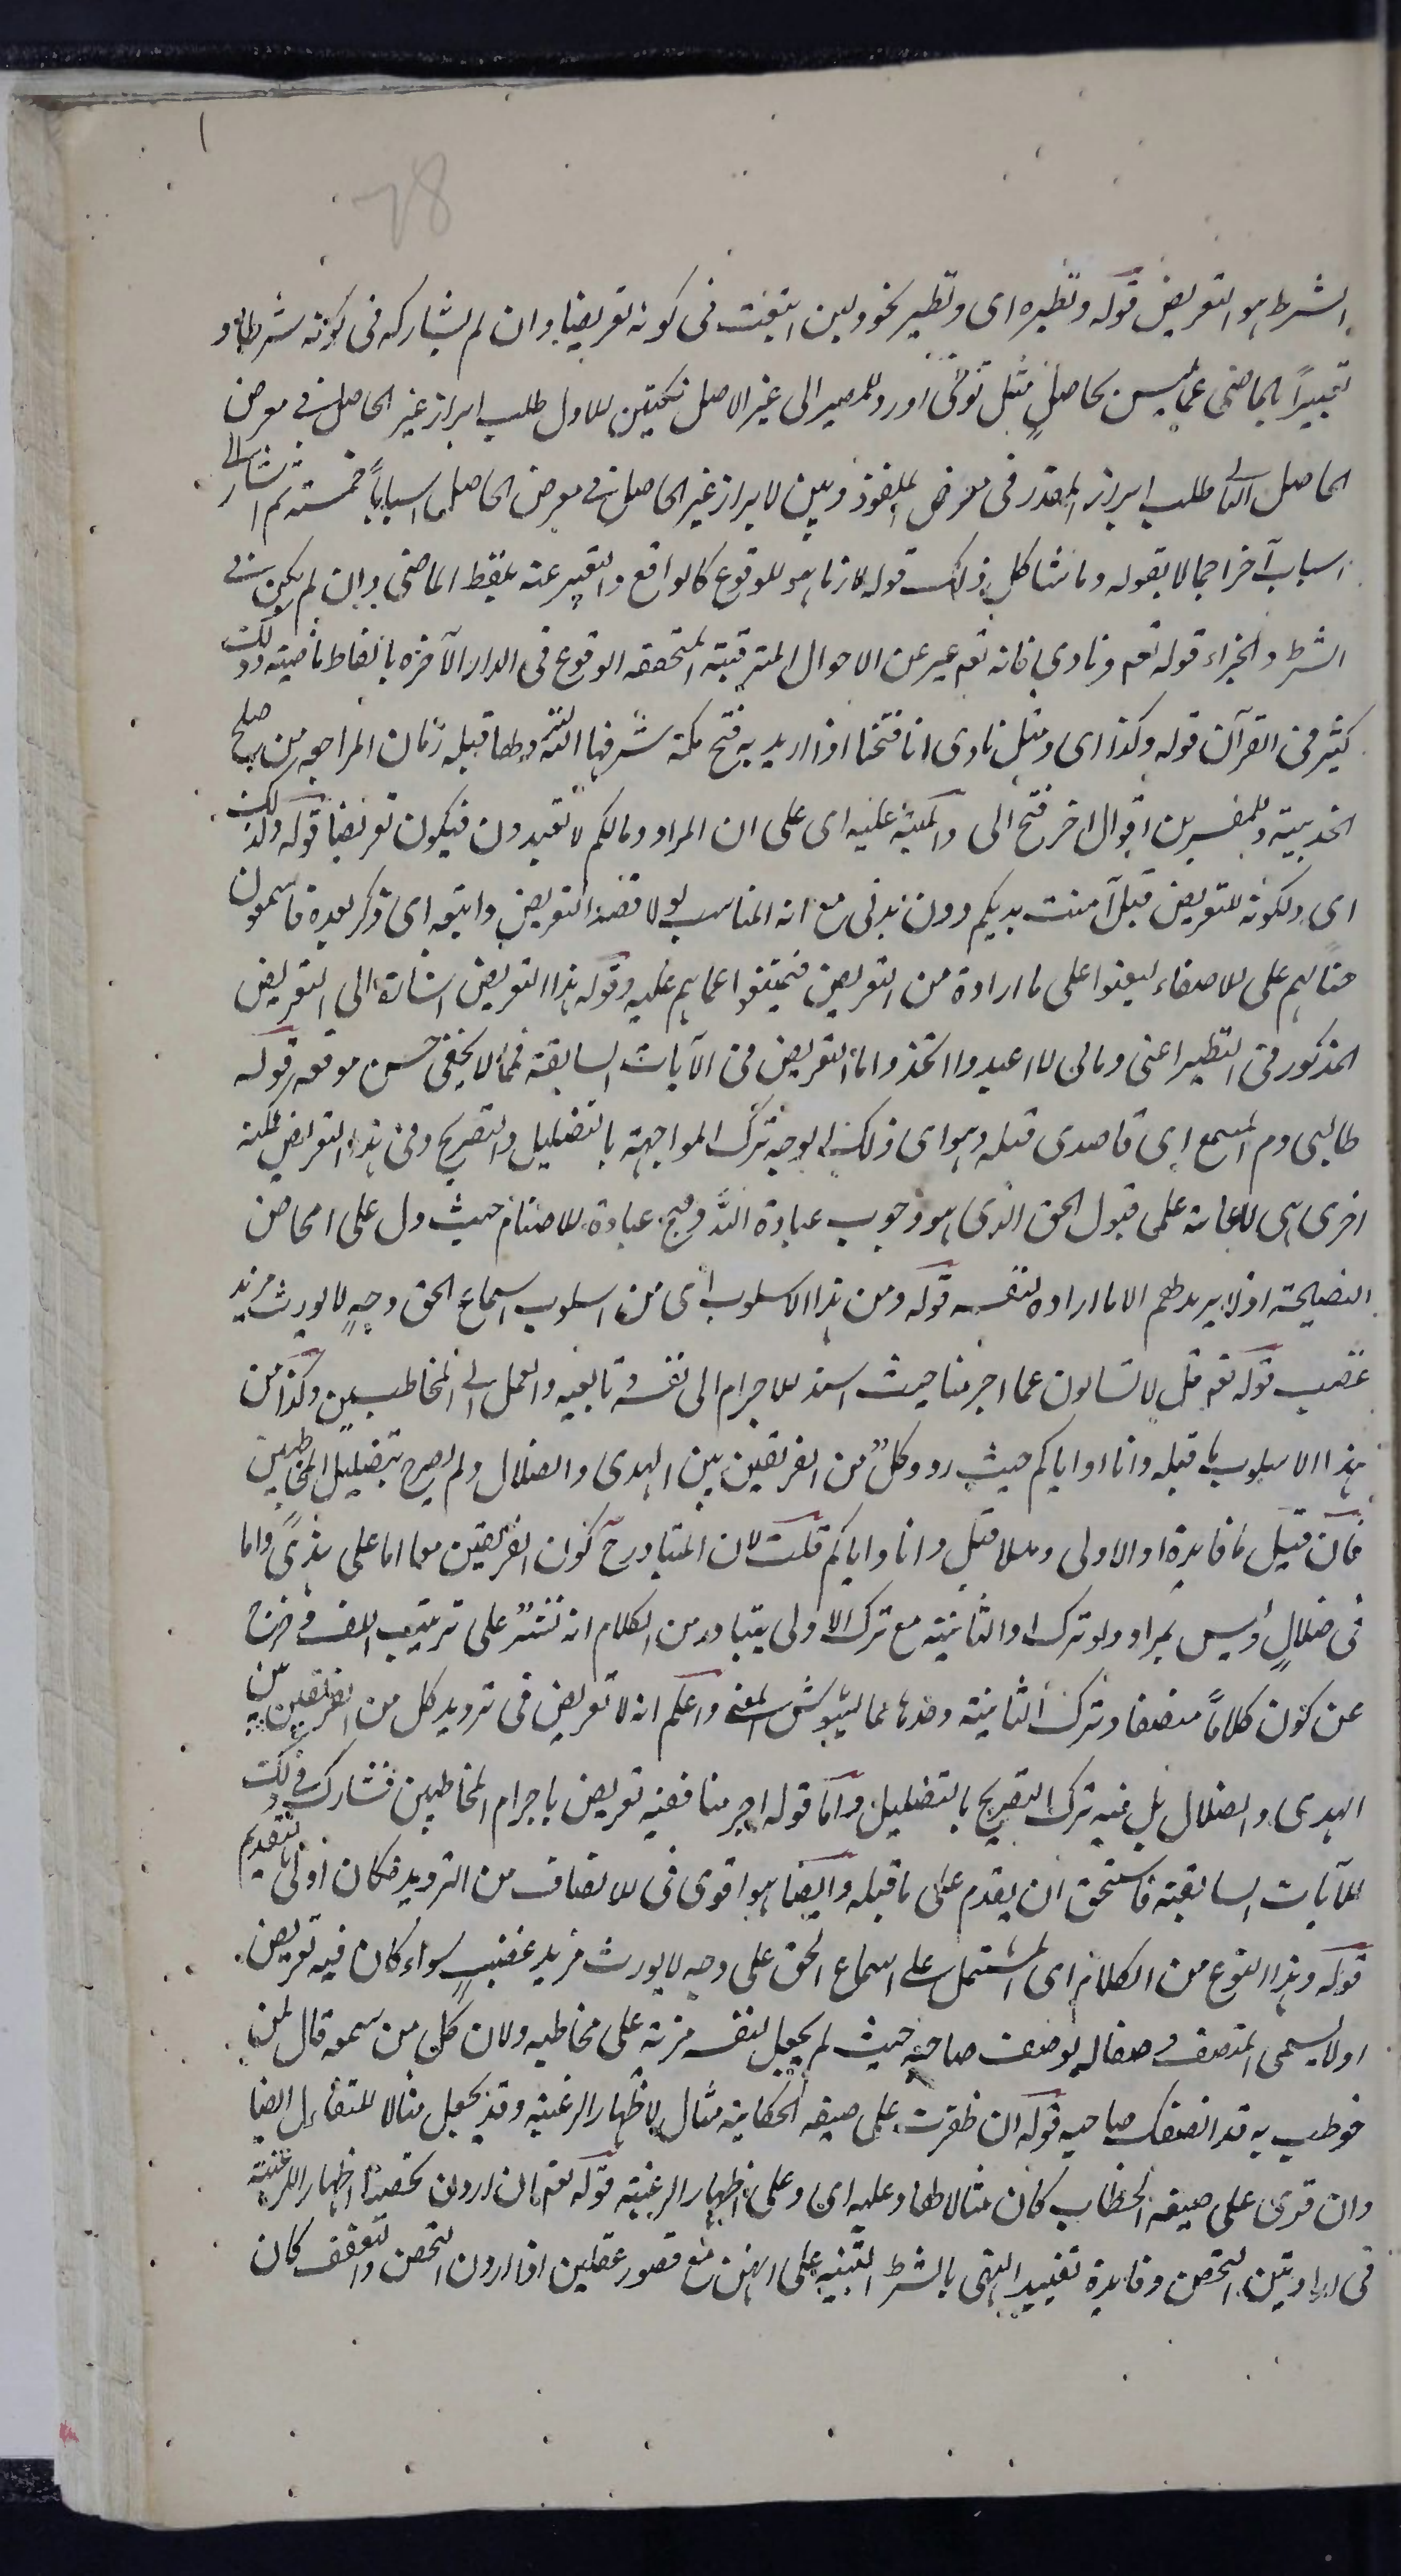 78
الشرط هو التعريض قوله ونظيره اى ونظير نحو ولين اتبعت فى كونه تعريضا وان لم يشاركه فى كونه شرطا و
تعبيراً بالماضى عما ليس بحاصل مثل توفى اورد للمصير الى غير الاصل نكتتين للاول طلب ابراز غير الحاصل فى معرض
الحاصل الثانى طلب ابراز المقدر فى معرض الملفوظ وبين لابراز غير الحاصل فى معرض الحاصل اسباباً خمسة ثم اشار الى
اسباب آخر اجمالا بقوله وما شاكل ذلك قوله لان ما هو للوقوع كالواقع والتعبير عنه بلفظ الماضى وان لم يكن فى
الشرط والجزاء قوله تعم ونادى فانه تعم عبر عن الاحوال المترقبة المتحققه الوقوع فى الدار الآخرة بالفاظ ماضيته وذلك
كثير فى القرآن قوله وكذا اى ومثل نادى انا فتحنا اذا اريد به فتح مكة شرفها الله ونظما قبله زمان المراجعه من صلح
الحديبية وللمفسرين اقوال اخر فتح الى والمنبه عليه اى على ان المراد ومالكم لا تعبدون فيكون تعريضا قوله ولذلك
اى ولكونه للتعريض قيل آمنت بربكم دون بربى مع انه المناسب لولا قصد التعريض واتبعه اى ذكر بعده فاسمعون
حثا لهم على الاصغاء ليقفوا على ما اراده من التعريض فيمتنعوا عما هم عليه وقوله هذا التعريض اشارة الى التعريض
المذكور فى النظير اعنى ومالى لا اعبد وا اتخذ واما التعريض فى الآيات السابقة فمما لا يخفى حسن موقعه قوله
طالبى دم المسمع اى قاصدى قتله وهو اى ذلك الوجه ترك المواجهة بالتضليل والتصريح وفى هذا التعريض نكتة
اخرى هى الاعانة على قبول الحق الذى هو وجوب عبادة الله وقبح عبادة الاصنام حيث دل على امحاض
النصيحة اذ لا يريد لهم الا ما اراده لنفسه قوله ومن هذا الاسلوب اى من اسلوب اسماع الحق وجه لا يورث مزيد
غضب قوله تعم قل لا تسالون عما اجرمنا حيث اسند الاجرام الى نفسه وتابعيه والعمل الى المخاطبين وكذا من
هذا الاسلوب ما قبله وانا او اياكم حيث ردد كل من الفريقين بين الهدى والضلال ولم يصرح بتضليل المخاطبين
فان قيل ما فايدة او الاولى وهلا قيل وانا واياكم قلت لان المتبادر ح كون الفريقين معا اما على هدى واما
فى ضلال وليس بمراد ولو ترك او الثانية مع ترك الاولى يتبادر من الكلام انه نشر على ترتيب اللف وخرج
عن كون كلاماً منصفا وترك الثانية وحدها مما يشوش المعنى واعلم انه لا تعريض فى ترديد كل من الفريقين بين
الهدى والضلال بل فيه ترك التصريح بالتضليل واما قوله اجرمنا ففيه تعريض باجرام المخاطبين فشارك فى ذلك
للآيات السابقة فاستحق ان يقدم على ما قبله وايضا هو اقوى فى الانصاف من الترديد فكان اولى بالتقديم
قوله وهذا النوع من الكلام اى المشتمل على اسماع الحق على وجه لا يورث مزيد غضب سواء كان فيه تعريض
او لا يسمى المنصف وصفا له بوصف صاحبه حيث لم يجعل لنفسه مزية على مخاطبه ولان كل من سمعه قال لمن
خوطب به قد انصفك صاحبه قوله ان ظفرت على صيغه الحكاية مثال لاظهار الرغبته وقد يجعل مثالا للتفاءل ايضا
وان قرى على صيغه الخطاب كان مثالا لهما وعليه اى وعلى اظهار الرغبته قوله تعم ان اردن تحصنا اظهارا للرغبة
فى ارادتهن التحصن وفايدة تقييد النهى بالشرط التنبيه على انهن مع قصور عقلهن اذا اردن التحصن والتعفف كان